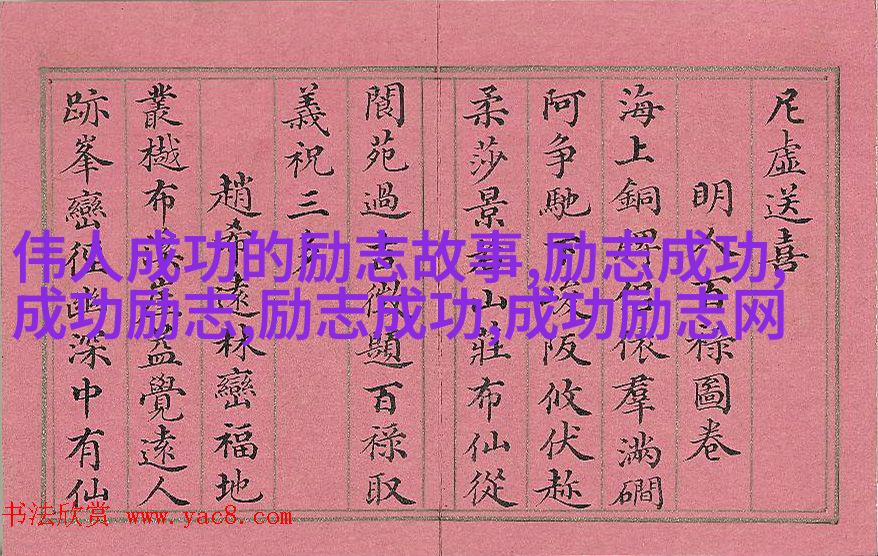 虛送喜
明人百祿圖卷
海上銅侶依羣滿磵
阿爭馳下阪攸伏
柔莎景山莊布仙從
閬苑過題百祿取
義祝三多
趙希遠林巒福地
叢樾布益覺遠人
跡峯巒深中有仙
伟人成功的励志故事,励志成功,
成功励志,励志成功,成功励志网
书法欣赏 www.yac8.com